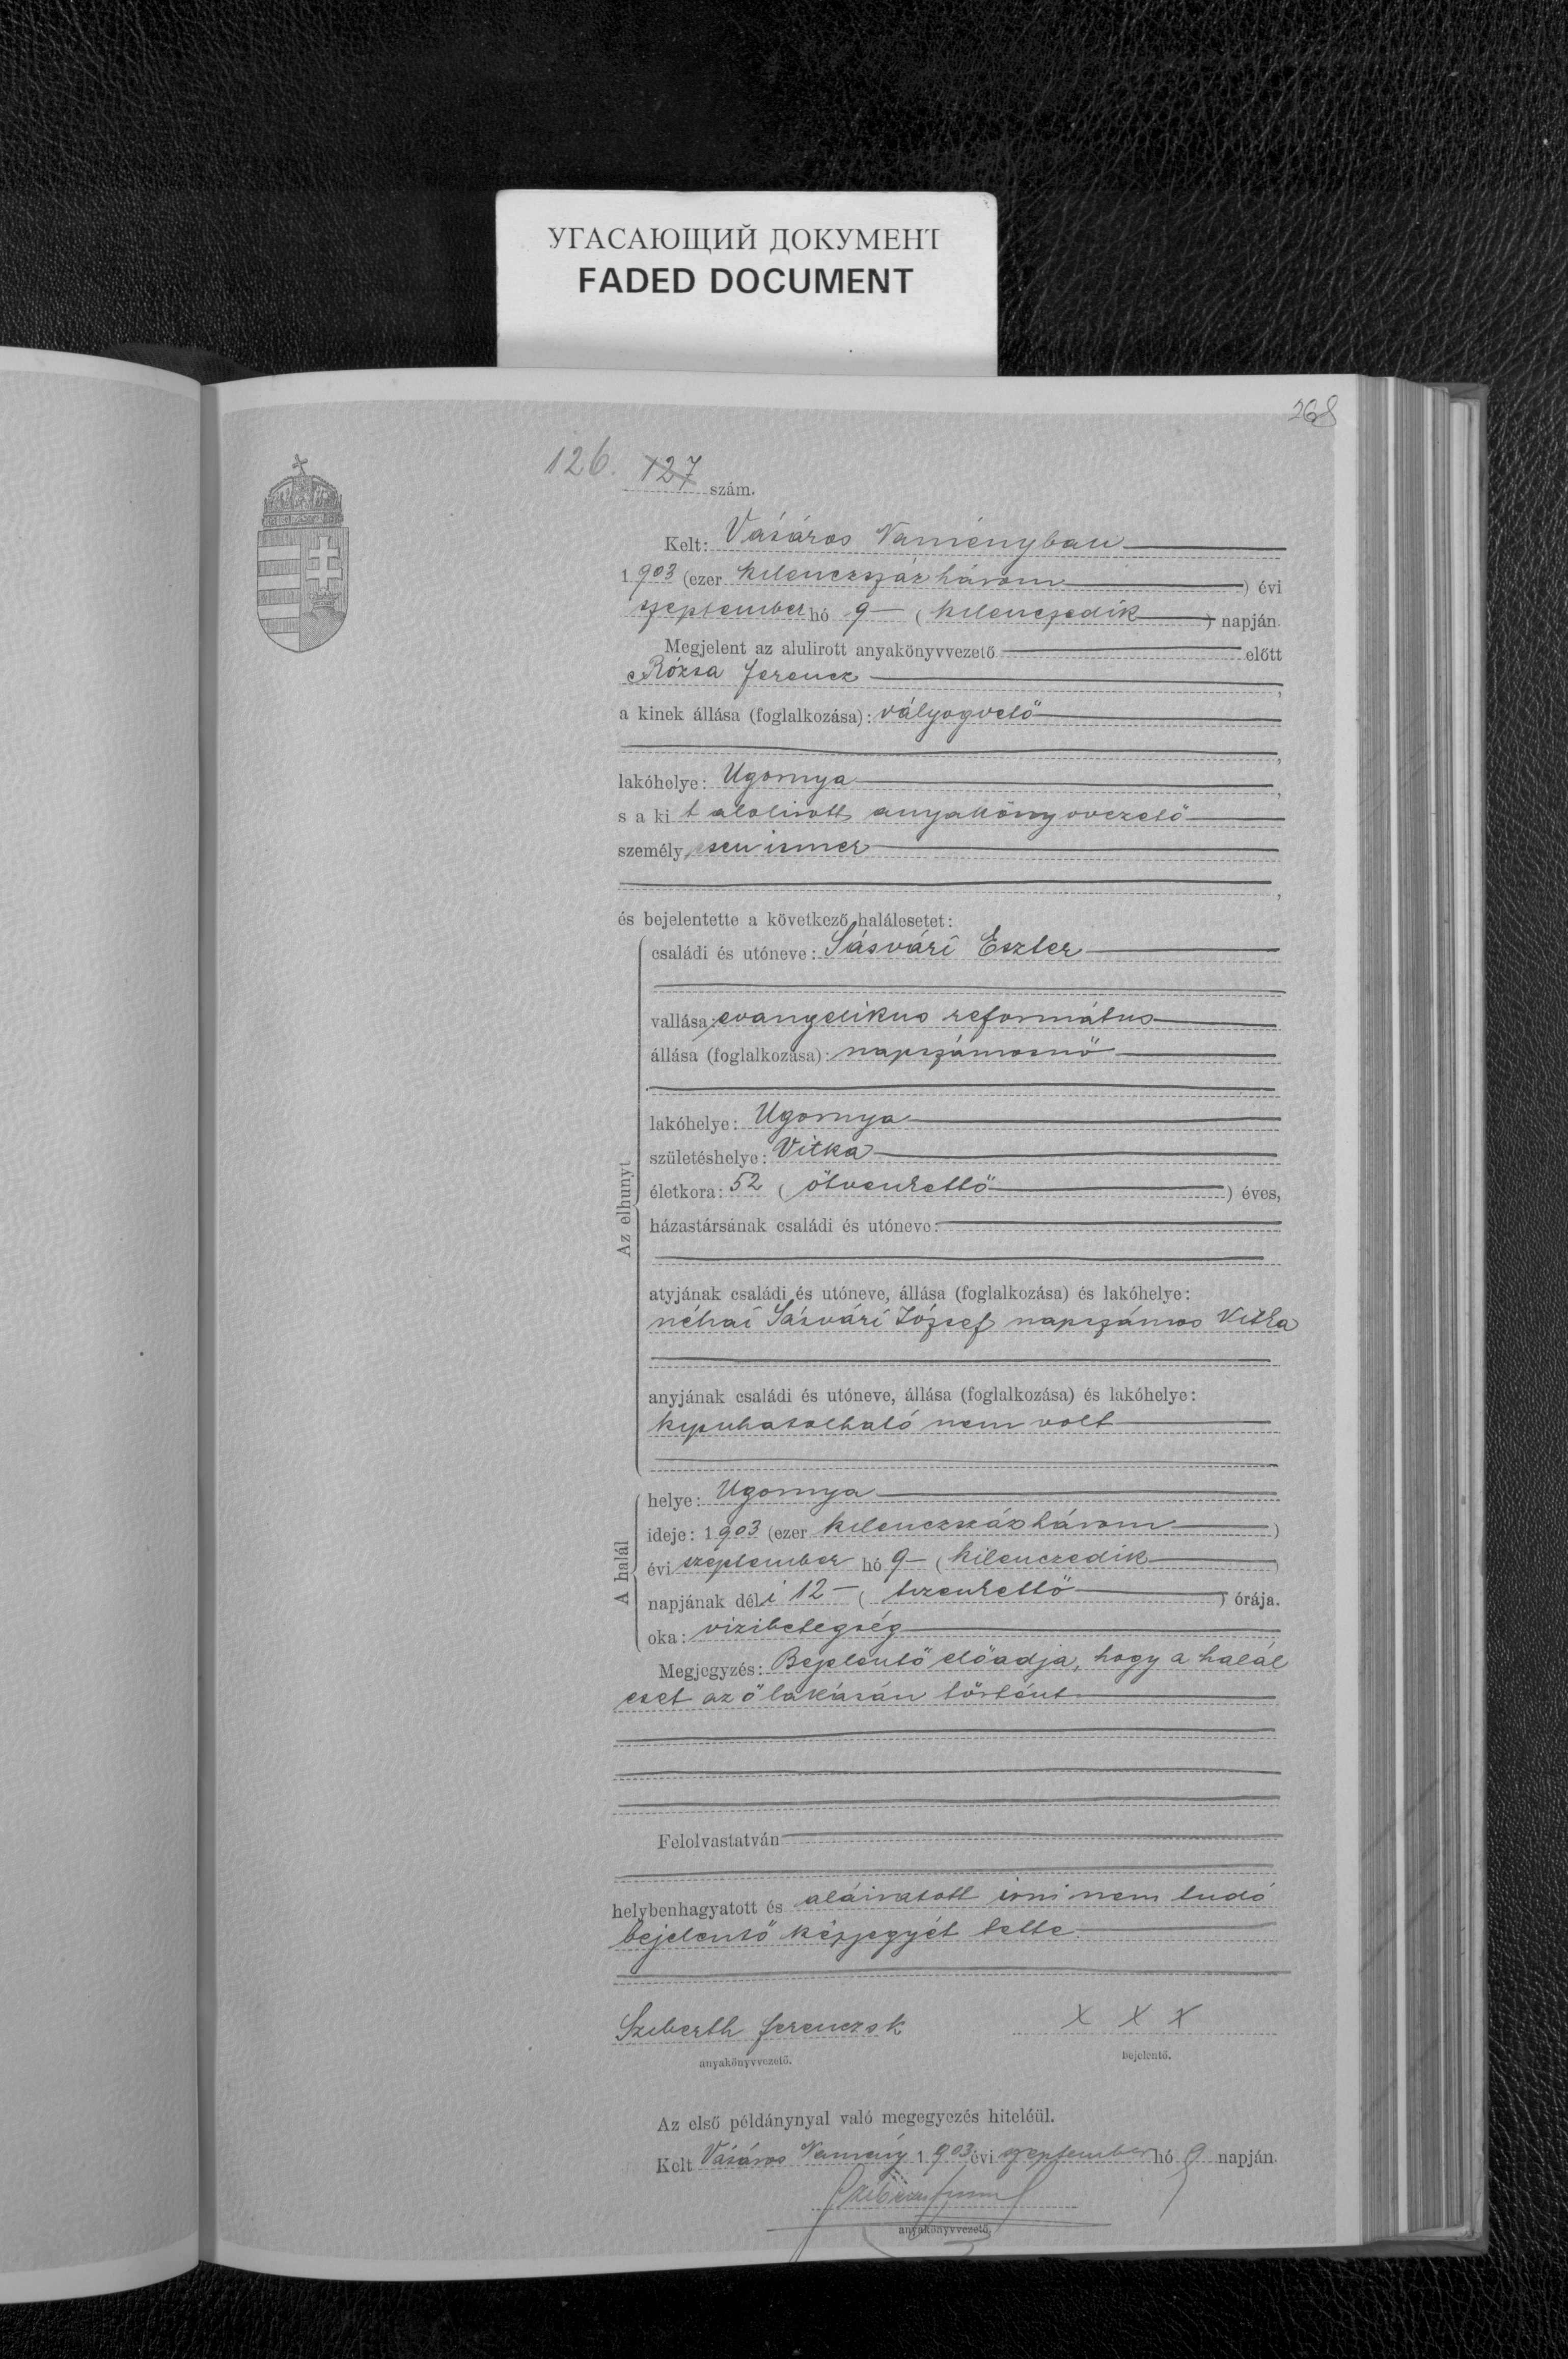 УГАСАЮЩИЙ ДОКУМЕНТ
FADED DOCUMENT
268
126. 127 szám.
Kelt: Vásáros Naményban
1903 (ezer kilenczszáz három) évi
szeptember hó 9 (kilenczedik) napján.
Megjelent az alulirott anyakönyvvezető előtt
Rózsa Ferencz,
a kinek állása (foglalkozása): vályogvető
lakóhelye: Ugornya,
s a kit alolirott anyakönyvvezető
személyesen ismer
és bejelentette a következő halálesetet:
Az elhunyt
családi és utóneve: Sásvári Eszter
vallása: evangelikus református
állása (foglalkozása): napszámosnő
lakóhelye: Ugornya
születéshelye: Vitka
életkora: 52 (ötvenkettő) éves,
házastársának családi és utóneve:
atyjának családi és utóneve, állása (foglalkozása) és lakóhelye:
néhai Sásvári József napszámos Vitka
anyjának családi és utóneve, állása (foglalkozása) és lakóhelye:
kipuhatolható nem volt
A halál
helye: Ugornya
ideje: 1903 (ezer kilenczszáz három)
évi szeptember hó 9 (kilenczedik)
napjának déli 12 (tizenkettő) órája.
oka: vizibetegség
Megjegyzés: Bejelentő előadja, hogy a halál
eset az ő lakásán történt
Felolvastatván
helybenhagyatott és aláiratott irni nem tudó
bejelentő kézjegyét tette
Szeberth Ferencz s k
X X X
anyakönyvvezető.
bejelentő.
Az első példánynyal való megegyezés hiteléül.
Kelt Vásáros Namény 1903 évi szeptember hó 9 napján.
anyakönyvvezető.